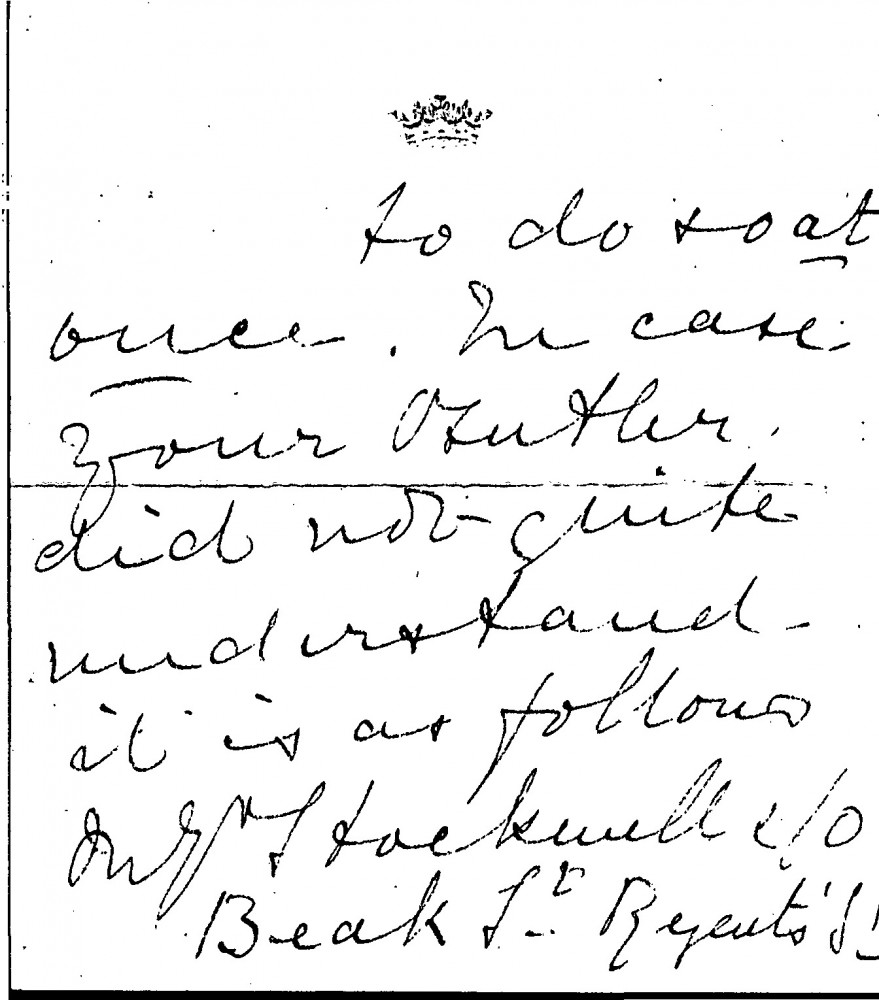 to do so at
once. In case
your Butler.
did not quite
understand -
it is as follows
Mr Stockwell c/o
Beak St. Regents' St